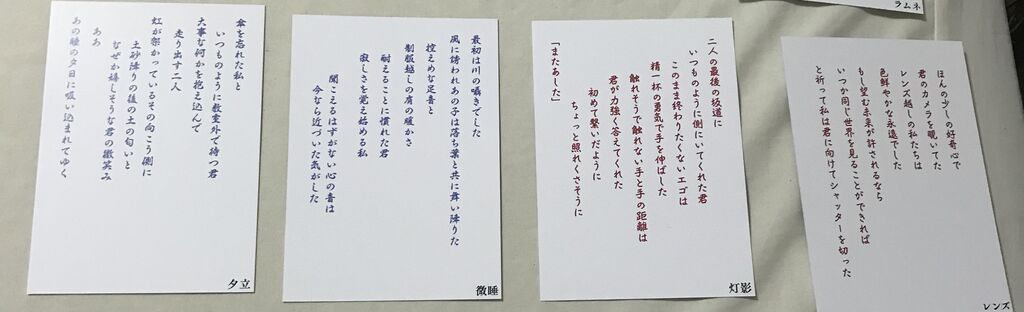 ラムネ
ほんの少しの好奇心で
君のカメラを覗いてた
レンズ越しの私たちは
色鮮やかな永遠でした
もし望む未来が許されるなら
いつか同じ世界を見ることができれば
と祈って私は君に向けてシャッターを切った
レンズ
二人の最後の坂道に
いつものように側にいてくれた君
このまま終わりたくないエゴは
精一杯の勇気で手を伸ばした
触れそうで触れない手と手の距離は
君が力強く答えてくれた
初めて繋いだように
ちょっと照れくさそうに
「またあした」
灯影
最初は川の囁きでした
風に誘われあの子は落ち葉と共に舞い降りた
控えめな足音と
制服越しの肩の暖かさ
耐えることに慣れた君
寂しさを覚え始める私
聞こえるはずがない心の音は
今なら近づいた気がした
微睡
傘を忘れた私と
いつものように教室外で待つ君
大事な何かを抱え込んで
走り出す二人
虹が架かっているその向こう側に
土砂降りの後の土の匂いと
なぜか嬉しそうな君の微笑み
ああ
あの瞳の夕日に吸い込まれてゆく
夕立